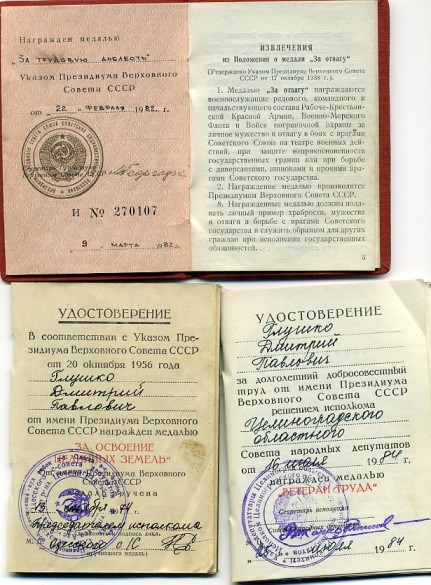 Награжден медалью
„ЗА ТРУДОВУЮ ДОБЛЕСТЬ“
Указом Президиума Верховного
Совета СССР
от 22 ФЕВРАЛЯ 1982 г.
Секретарь Президиума
Верховного Совета СССР
И № 270107
9 МАРТА 1982 г.
ИЗВЛЕЧЕНИЯ
из Положения о медали „За отвагу“
(Утверждено Указом Президиума Верховного Совета
СССР от 17 октября 1938 г.)
1. Медалью „За отвагу“ награждаются
военнослужащие рядового, командного и
начальствующего состава Рабоче-Крестьян-
ской Красной Армии, Военно-Морского
Флота и Войск пограничной охраны за
личное мужество и отвагу в боях с врагами
Советского Союза на театре военных дей-
ствий, при защите неприкосновенности
государственных границ или при борьбе
с диверсантами, шпионами и прочими вра-
гами Советского государства.
2. Награждение медалью производится
Президиумом Верховного Совета СССР.
8. Награжденные медалью должны по-
давать личный пример храбрости, мужества
и отваги в борьбе с врагами Советского
государства и служить образцом для других
граждан при исполнении государственных
обязанностей.
5
УДОСТОВЕРЕНИЕ
В соответствии с Указом Пре-
зидиума Верховного Совета СССР
от 20 октября 1956 года
Глушко
Дмитрий
Павлович
от имени Президиума Верховного
Совета СССР награжден медалью
„ЗА ОСВОЕНИЕ
ЦЕЛИННЫХ ЗЕМЕЛЬ“
Президиума Верховного
Совета СССР
медаль вручена
Председателем исполкома
УДОСТОВЕРЕНИЕ
Глушко
Дмитрий
Павлович
за долголетний добросовестный
труд от имени Президиума
Верховного Совета СССР
решением исполкома
Целиноградского
областного
Совета народных депутатов
от 16 июля 1984 г.
награжден медалью
„ВЕТЕРАН ТРУДА“
июля 1984 г.